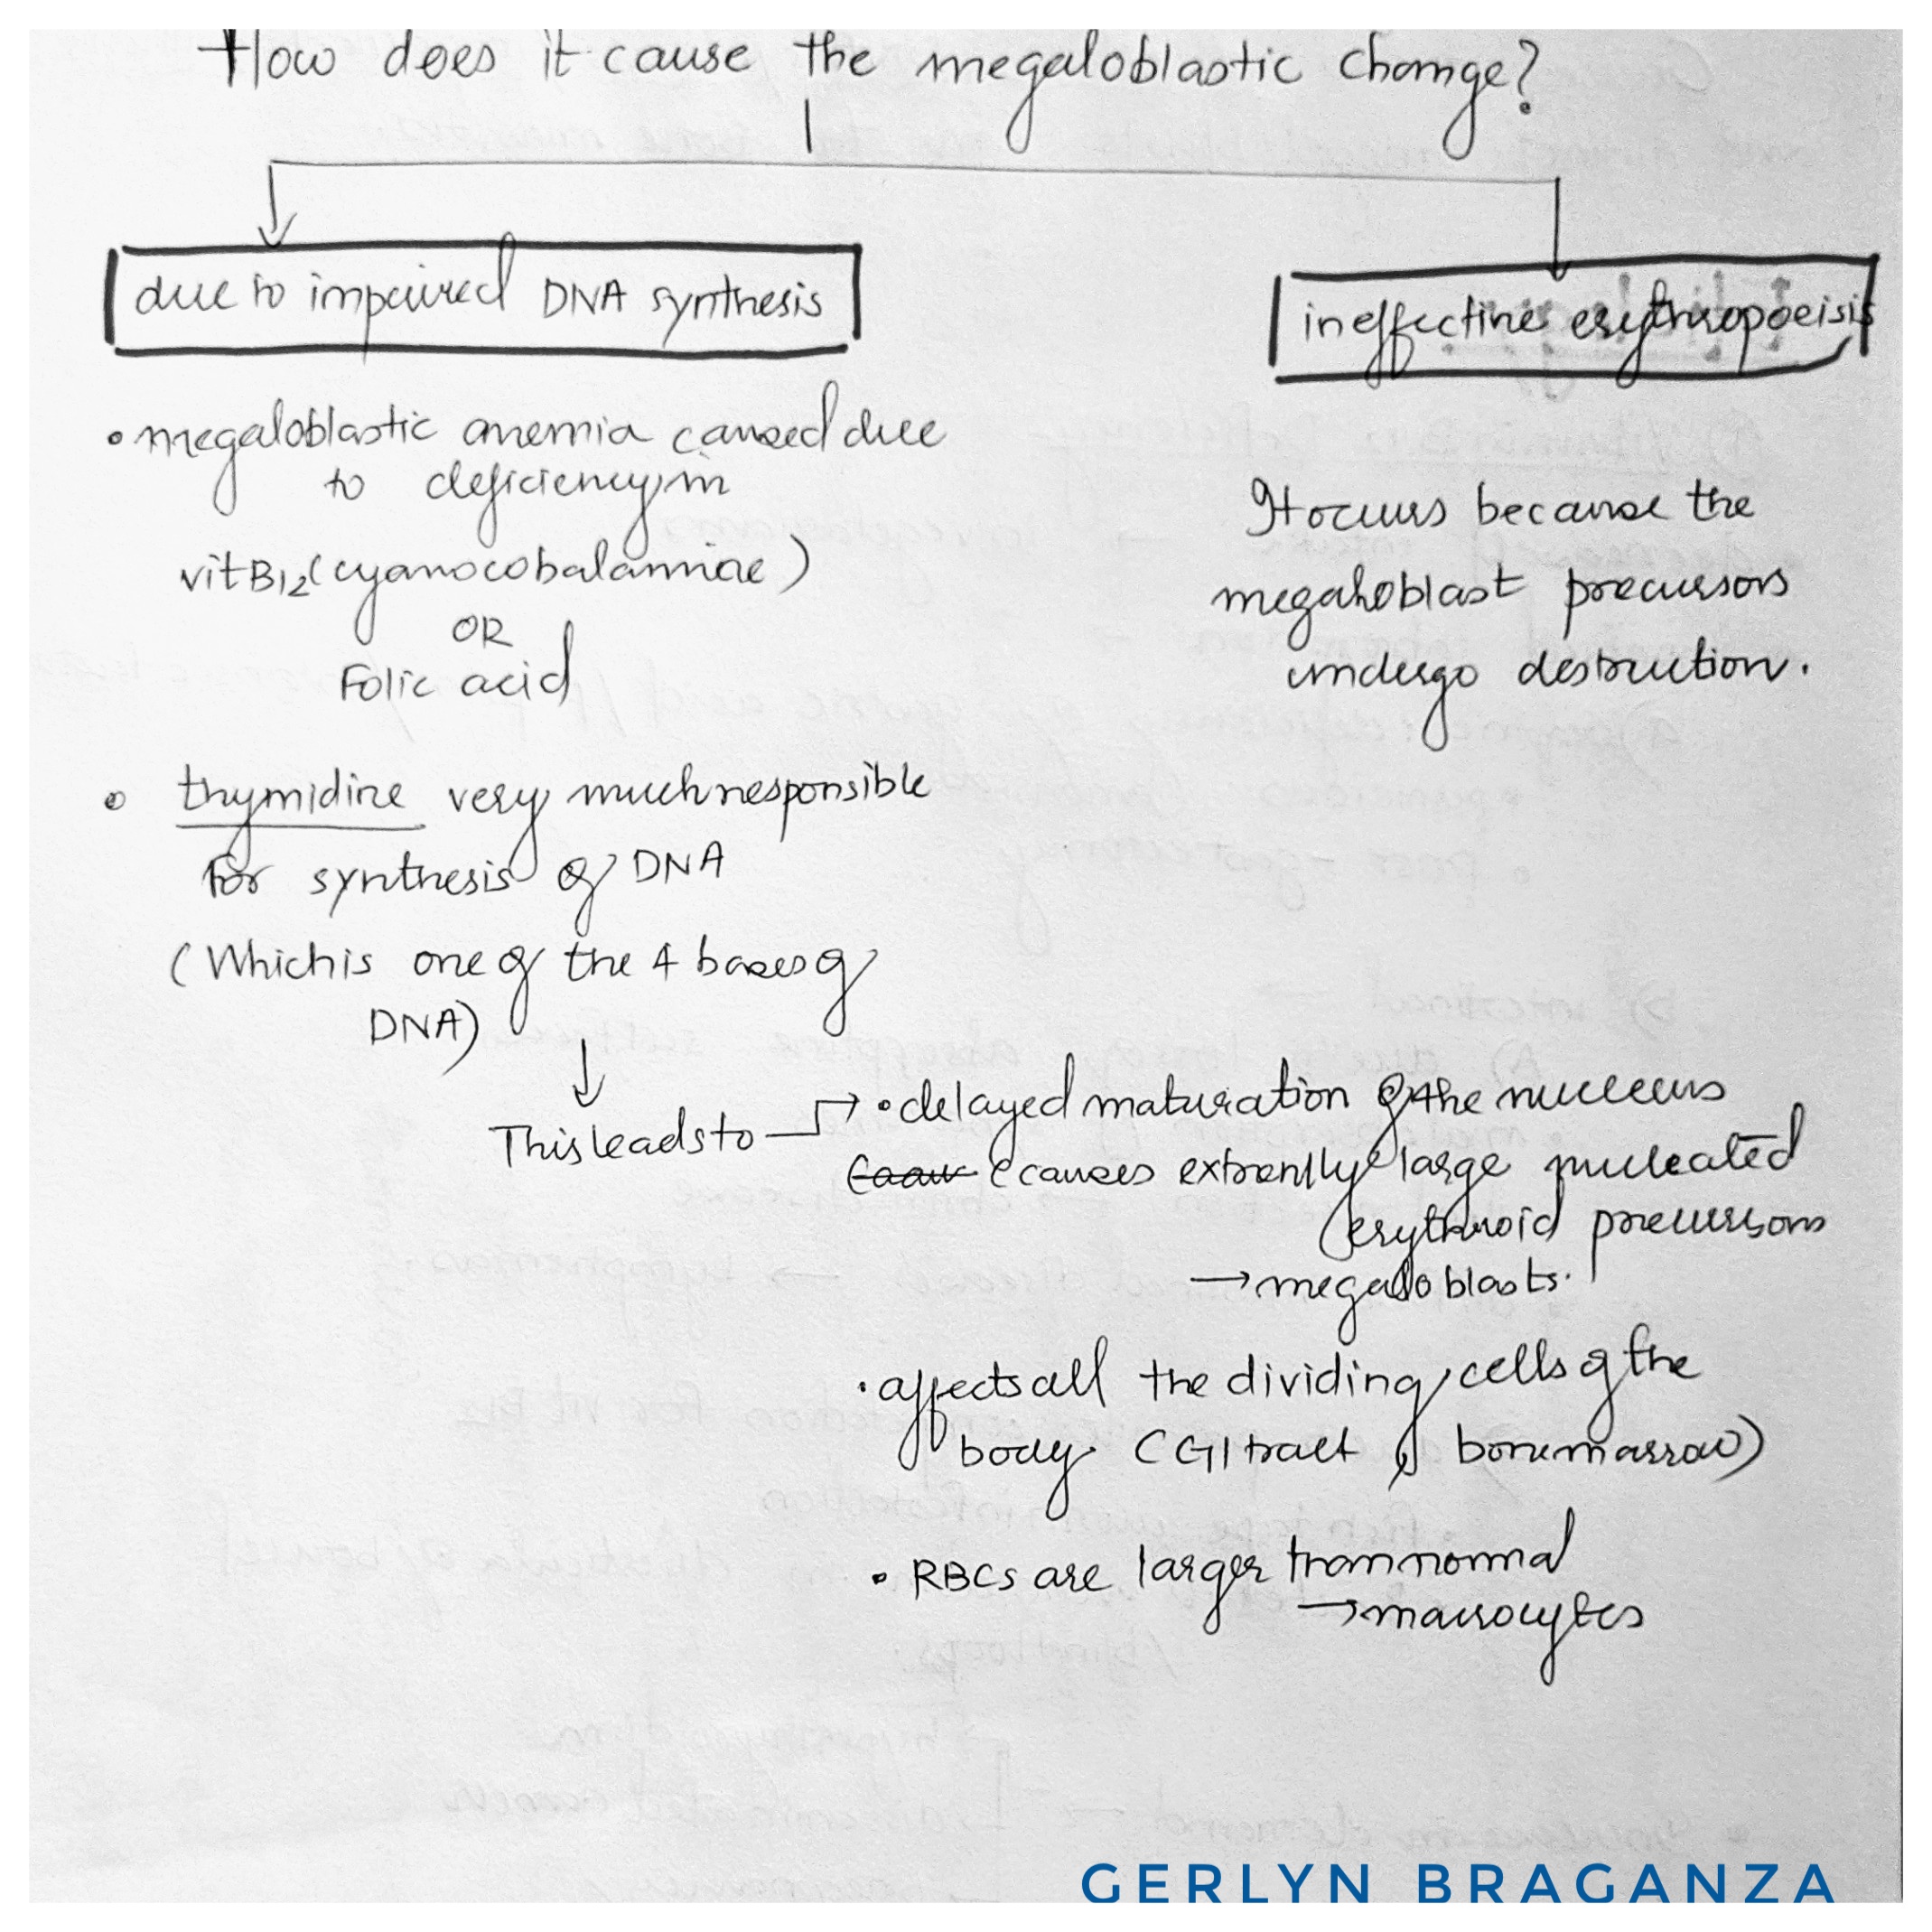 How does it cause the megaloblastic change?
due to impaired DNA synthesis
• megaloblastic anemia caused due
to deficiency in
vit B12 (cyanocobalamine)
OR
Folic acid
• thymidine very much responsible
for synthesis of DNA
(Which is one of the 4 bases of
DNA)
↓
This leads to → • delayed maturation of the nucleus
(causes extremlly large nucleated
erythroid precursors
→ megaloblasts.
• affects all the dividing cells of the
body. (GI tract, bone marrow)
• RBCs are larger than normal
→ macrocytes
ineffective erythropoeisis
It occurs because the
megaloblast precursors
undergo destruction.
GERLYN BRAGANZA